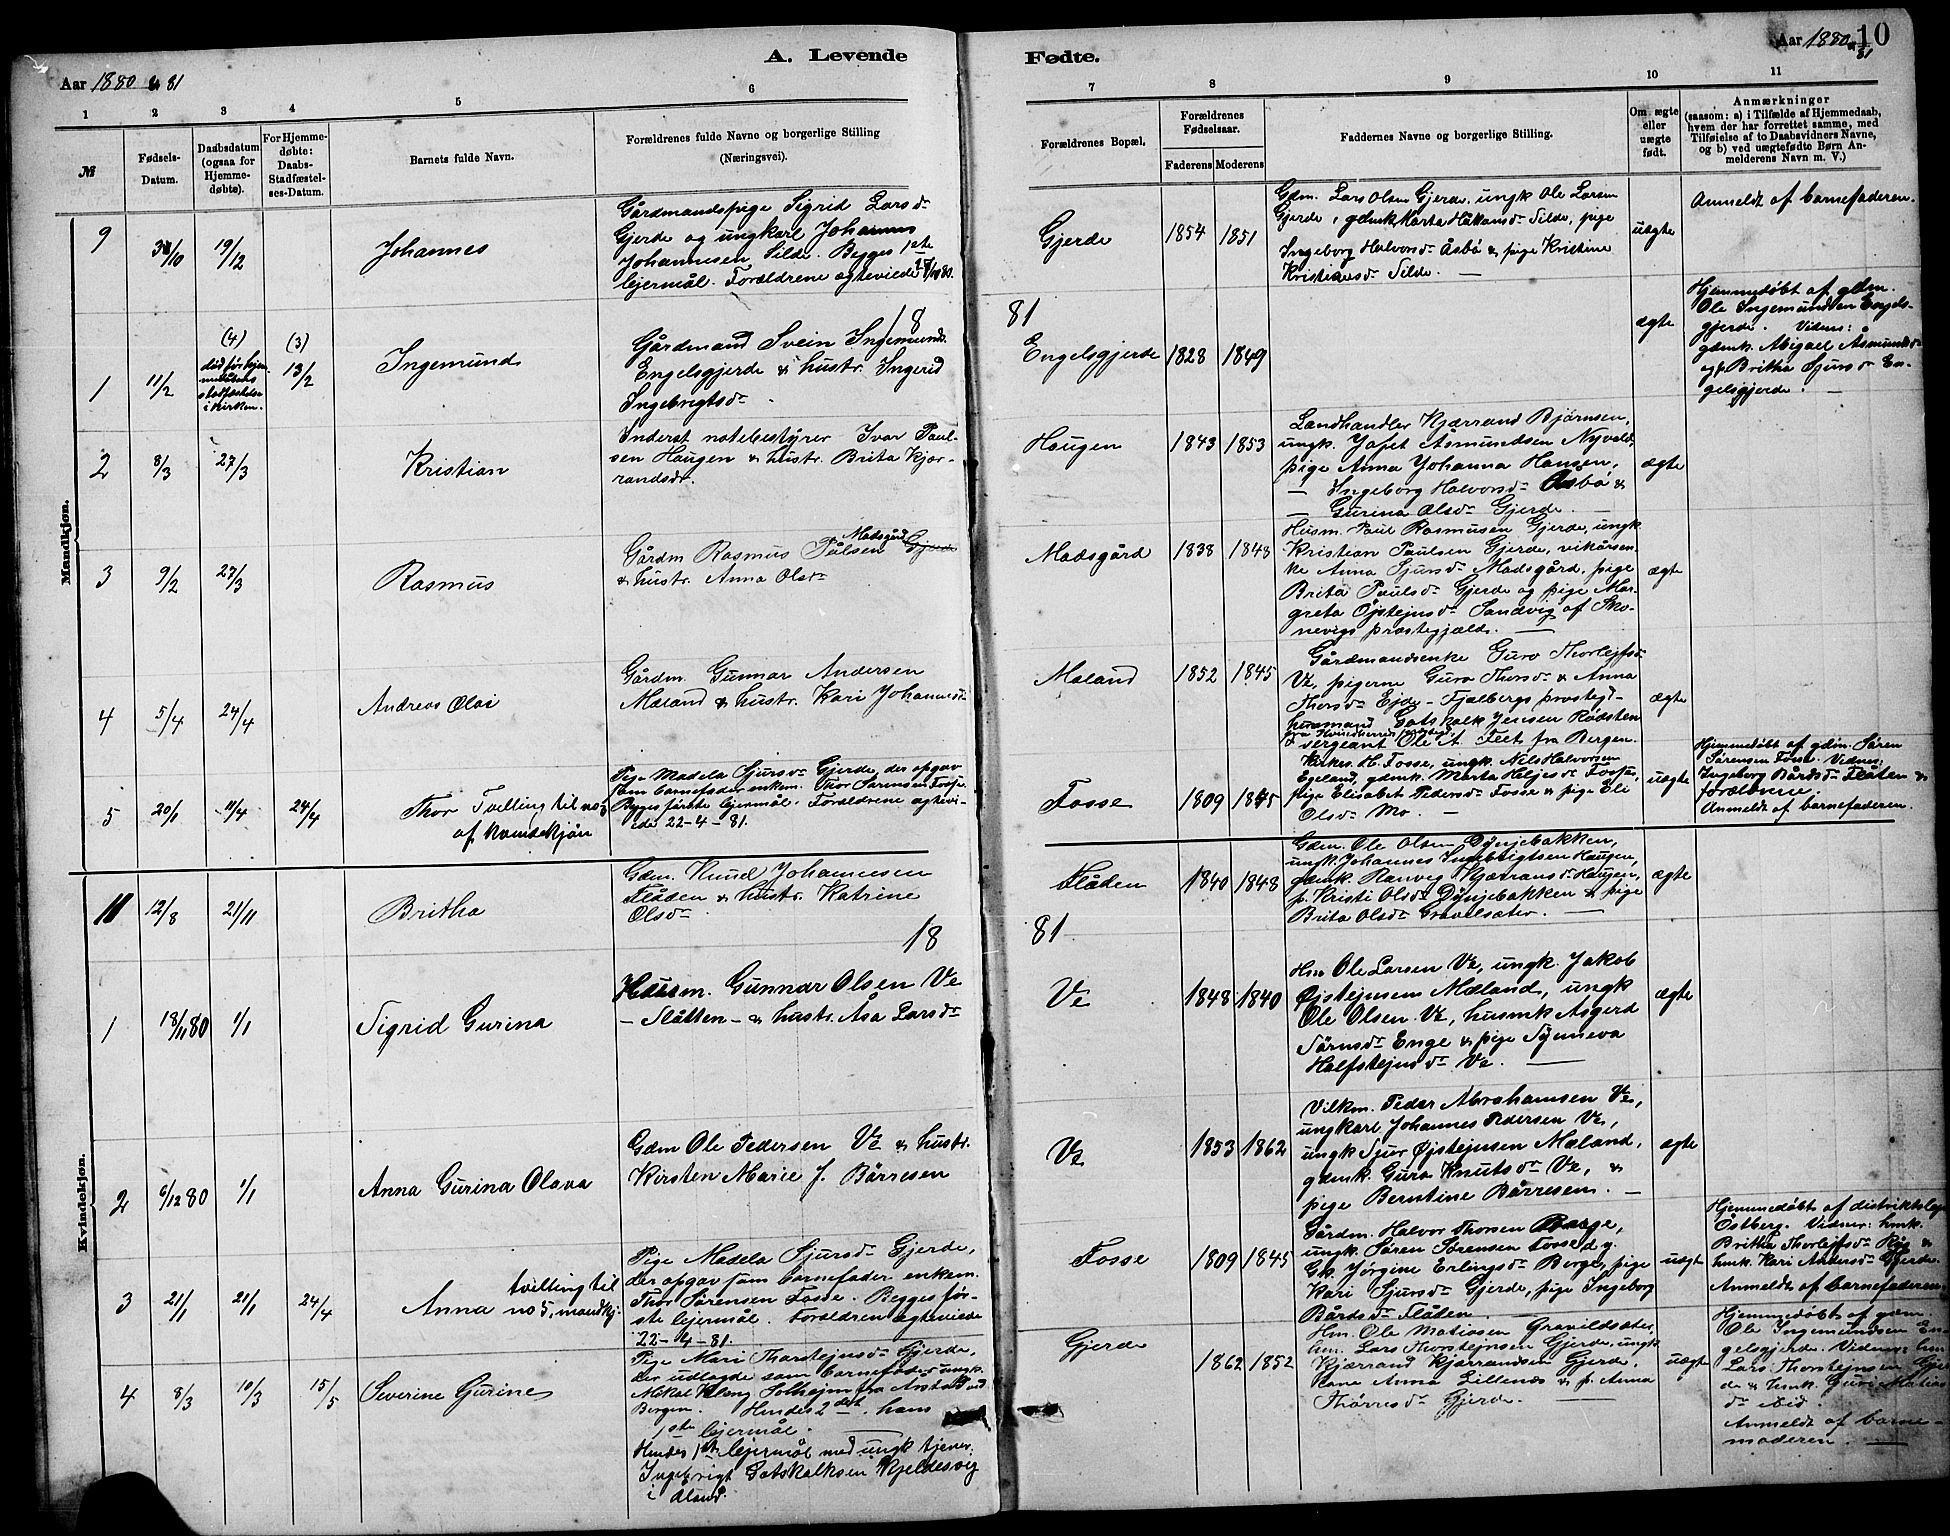 A. Levende
Fødte.
Aar 1880 & 81
Aar 1880 & 81
10
1 2 3 4 5 6
7 8 9 10 11
№
Fødsels-
Datum.
Daabsdatum
(ogsaa for
Hjemme-
døbte).
For Hjemme-
døbte:
Daabs-
Stadfæstel-
ses-Datum.
Barnets fulde Navn.
Forældrenes fulde Navne og borgerlige Stilling
(Næringsvei).
Forældrenes Bopæl.
Forældrenes
Fødselsaar.
Faderens
Moderens
Faddernes Navne og borgerlige Stilling.
Om ægte
eller
uægte
født.
Anmærkninger
(saasom: a) i Tilfælde af Hjemmedaab,
hvem der har forrettet samme, med
Tilføielse af to Daabsvidners Navne,
og b) ved uægtefødte Børn An-
melderens Navn m. V.)
Mandkjøn.
9
19/12
Johannes
Gårdmandspige Sigrid Larsdr
Gjerde og ungkarl Johannes
Johannesen Silde. Begges 1ste
lejermål. Forældrene ægteviede
Gjerde
1854
1851
Gdm. Lars Olsen Gjerde, ungk Ole Larsen
Gjerde, gdmk Marta Håkansdr Silde, pige
Ingeborg Halvorsdr Åsbø & pige Kristine
Kristiansdr Silde.
uægte
Anmeldt af barnefaderen.
18
81
1
11/2
(4)
død før hjem-
medåbens
stadfæstelse
i kirken.
(3)
13/2
Ingemund
Gårdmand Svein Ingemunds.
Engelsgjerde & hustr. Ingerid
Ingebrigtsdr
Engelsgjerde
1828
1849
ægte
Hjemmedøbt af gdm.
Ole Ingemundsen Engels-
gjerde. Vidner:
gdmk. Abigael Åsmundsdr
og p. Britha Sjursdr En-
gelsgjerde.
2
8/3
27/3
Kristian
Inderst notebestyrer Ivar Paul-
sen Haugen & hustr. Brita Kjær-
randsdr.
Haugen
1843
1853
Landhandler Kjærrand Bjørnsen,
ungk. Jofet Åsmundsen Nyvold,
pige Anna Johanna Hansen,
— Ingeborg Halvorsdr Åsbø &
— Gurina Olsdr Gjerde.
ægte
3
9/2
27/3
Rasmus
Gårdm Rasmus Pålsen Madsgård Gjerde
& hustr. Anna Olsdr
Madsgård
1838
1843
Husm. Paul Rasmusen Gjerde, ungk
Kristian Paulsen Gjerde, vikårsen-
ke Anna Sjursdr Madsgård, pige
Brita Paulsdr Gjerde og pige Mar-
greta Øjstejnsdr Sandvig af Sko-
nevigs præstegjæld.
ægte
4
5/4
24/4
Andreas Olai
Gårdm. Gunnar Andersen
Mæland & hustr. Kari Johannesdr
Mæland
1852
1845
Gårdmandsenke Guro Thorlejfsdr
Ve, pigerne Guro Thorsdr & Anna
Thorsdr Ejde - Fjælbergs præstegj-
husmand Gotskalk Jensen Rødsten
fra Kvindherreds præstegj.
& sergeant Ole A. Feet fra Bergen.
ægte
5
20/1
11/4
24/4
Thor Tvilling til no 3
af kvindekjøn
Pige Madela Sjursdr Gjerde, der opgav
som barnefader enkem. Thor Sørensen Fosse.
Begges første lejermål. Forældrene ægtevi-
ede 22-4-81.
Fosse
1809
1845
Kirkes. H. Fosse, ungk. Nils Halvorsen
Egeland, gdmk. Marta Heljesdr Fosse,
pige Elisabet Pedersdr Fosse & pige Eli
Olsdr Mo.
uægte
Hjemmedøbt af gdm. Søren
Sørensen Fosse. Vidner:
Ingeborg Bårdsdr Flåten &
forældrene.
Anmeldt af barnefaderen.
Kvindekjøn.
12/8
21/11
Britha
Gdm. Knud Johannesen
Flåden & hustr. Katrine
Olsdr
Flåden
1840
1848
Gdm. Ole Olsen Dynjebakken,
ungk. Johannes Ingebrigtsen Haugen,
gdmk. Ranveg Kjærransdr Haugen,
p. Kristi Olsdr Dynjebakken & pige
Brita Olsdr Gravelsæter.
ægte
18
81
1
18/11 80
1/1
Sigrid Gurina
Husm. Gunnar Olsen Ve
— Slåtten — & hustr. Åsa Larsdr
Ve
1848
1840
Hm Ole Larsen Ve, ungk. Jakob
Øjstejnsen Mæland, ungk
Ole Olsen Ve, husmk Asgerd
Sørnsdr Enge & pige Synneva
Halfstejnsdr Ve.
ægte
2
6/12 80
1/1
Anna Gurina Olava
Gdm Ole Pedersen Ve & hustr.
Kirsten Marie J. Børresen
Ve
1853
1862
Vilkm. Peder Abrahamsen Ve,
ungkarl Johannes Pedersen Ve,
ungk Sjur Øjstejnsen Mæland,
gdmk. Guro Knutsdr Ve, &
pige Berntine Børresen.
ægte
3
21/1
21/1
24/4
Anna tvilling til
no 5, mandkj:
Pige Madela Sjursdr Gjerde,
der opgav som barnefader enkem.
Thor Sørensen Fosse. Begges før-
ste lejermål. Forældrene ægteviede
22-4-81.
Fosse
1809
1845
Gårdm. Halvor Thorsen Borge,
ungk. Søren Sørensen Fosse d.y.
Gk Jørgine Erlingsdr Borge, pige
Kari Sjursdr Gjerde, pige Ingeborg
Bårdsdr Flåden.
uægte
Hjemmedøbt af distriktslæge
Östberg. Vidner: hmk.
Britha Thorlejfsdr &
hmk. Kari Andersdr Gjerde.
Anmeldt af barnefaderen.
4
8/3
10/3
15/5
Severine Gurine
Pige Mari Thorstejnsdr Gjerde,
der udlagde som barnefader ungk.
Mikal Kleng Solhejm fra Årstad ved
Bergen. Hendes 2det, hans
1ste lejermål.
Hendes 1ste lejermål med ungk tjener
Ingebrigt Gotskalksen Kjeldesvig
i Øland.
Gjerde
1862
1852
Hm. Ole Matiasen Gravildsæter,
hm. Lars Thorstejnsen Gjerde, ungk.
Kjærrand Kjærrandsen Gjerde,
Kone Anna Lillenæs & p. Anna
Thoresdr Gjerde.
uægte
Hjemmedøbt af gdm.
Ole Ingemundsen En-
gelsgjerde. Vidner: hm
Lars Thorstejnsen Gjer-
de & hmk. Guri Matias-
dr ibid.
Anmeldt af barne-
moderen.